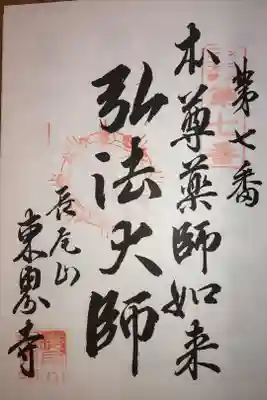 第七番
本尊藥師如来
弘法大師
長尾山
東界寺